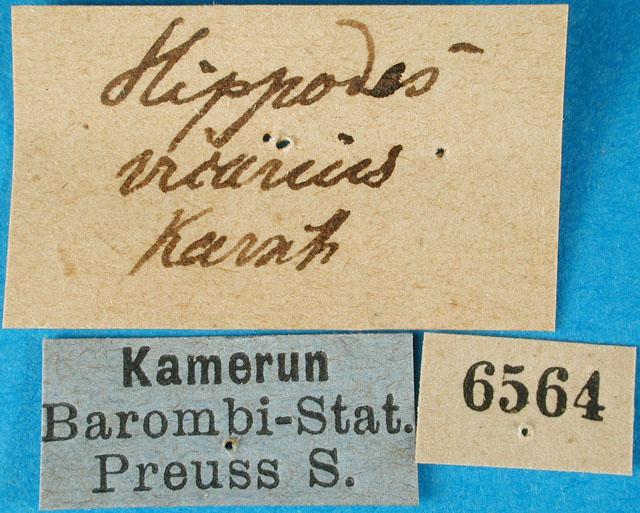 Hippodes
vicarius
Karsh
Kamerun
Barombi-Stat.
Preuss S.
6564